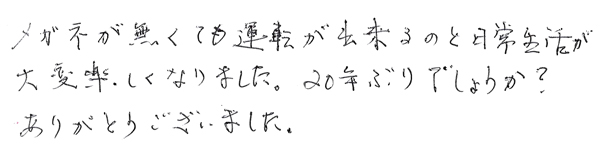 メガネが無くても運転が出来るのと日常生活が
大変楽しくなりました。20年ぶりでしょうか?
ありがとうございました。